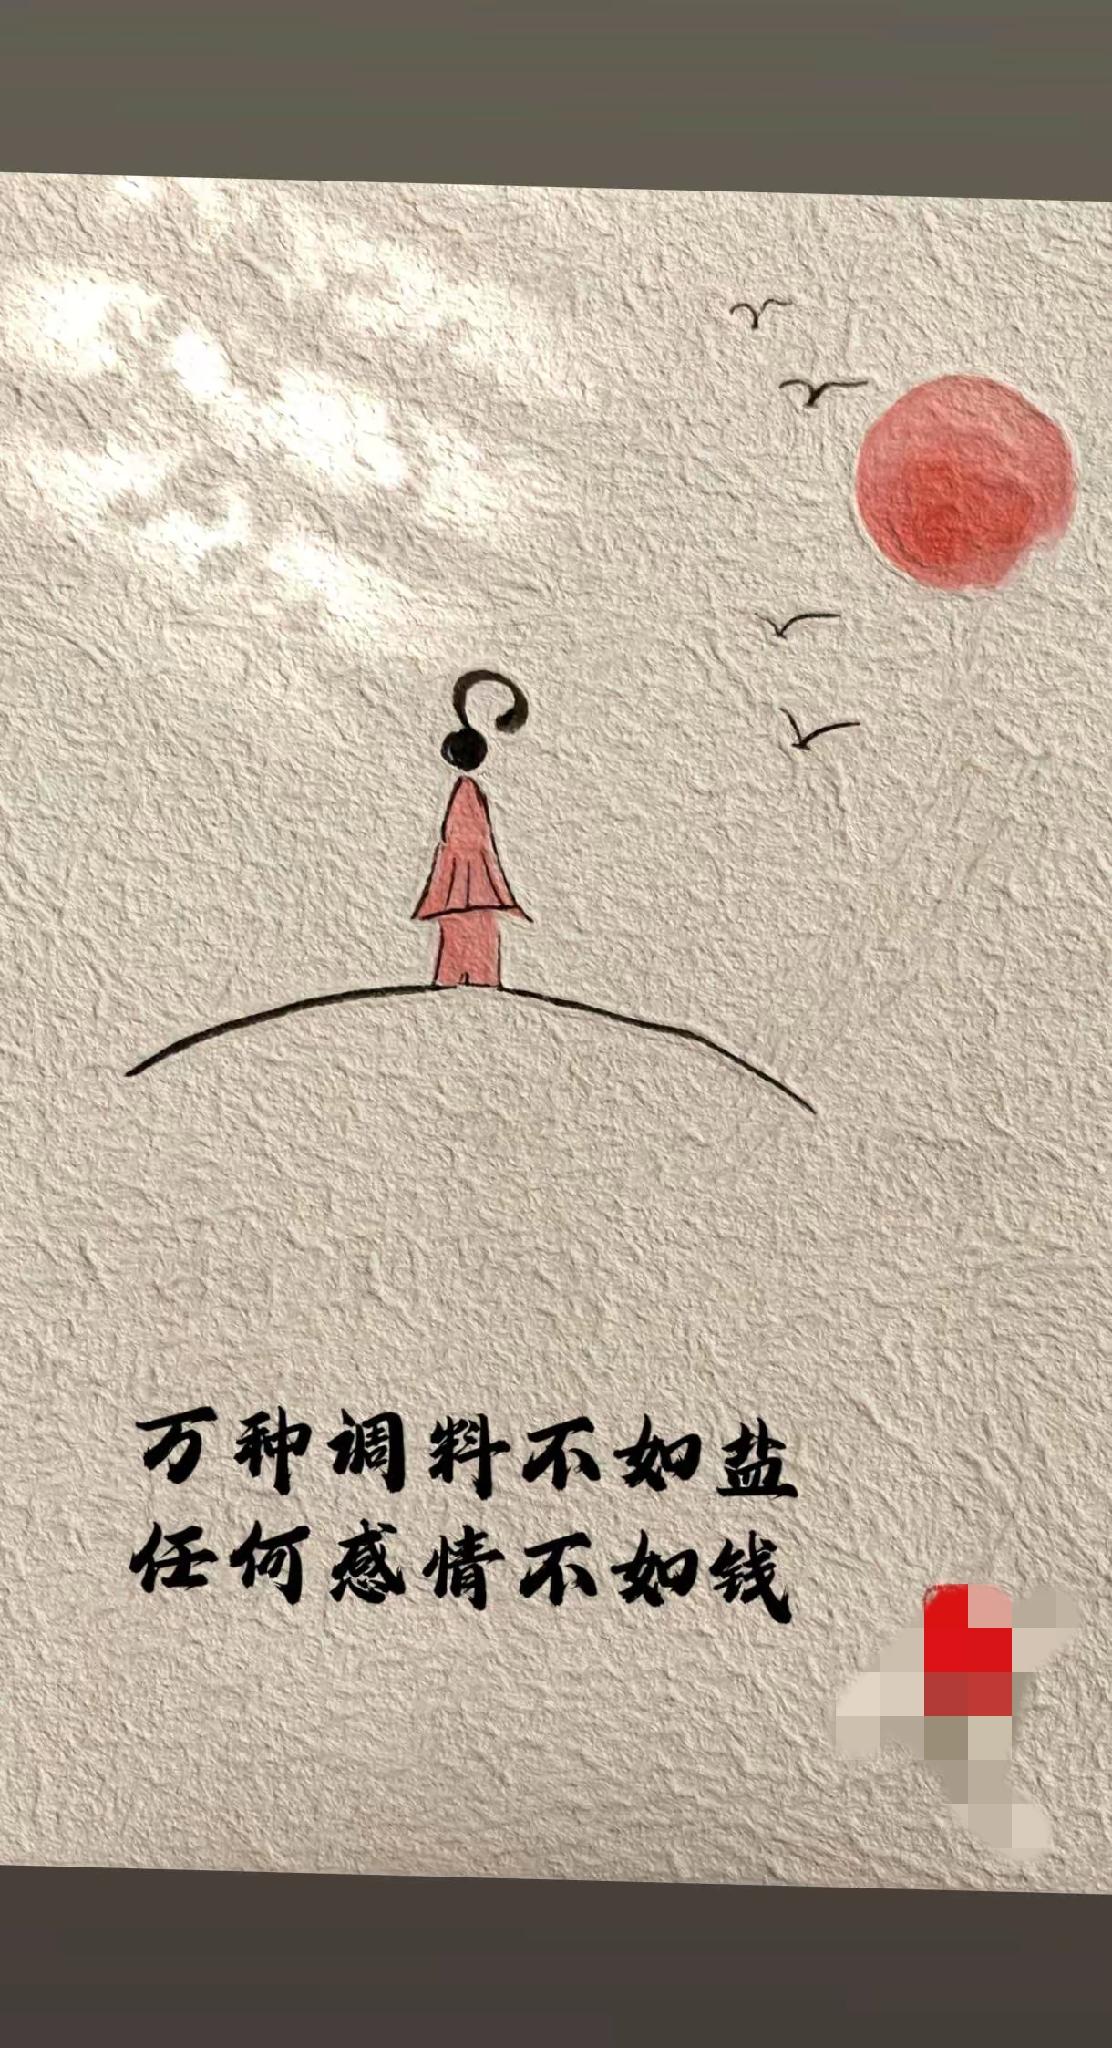 万种调料不如盐
任何感情不如钱